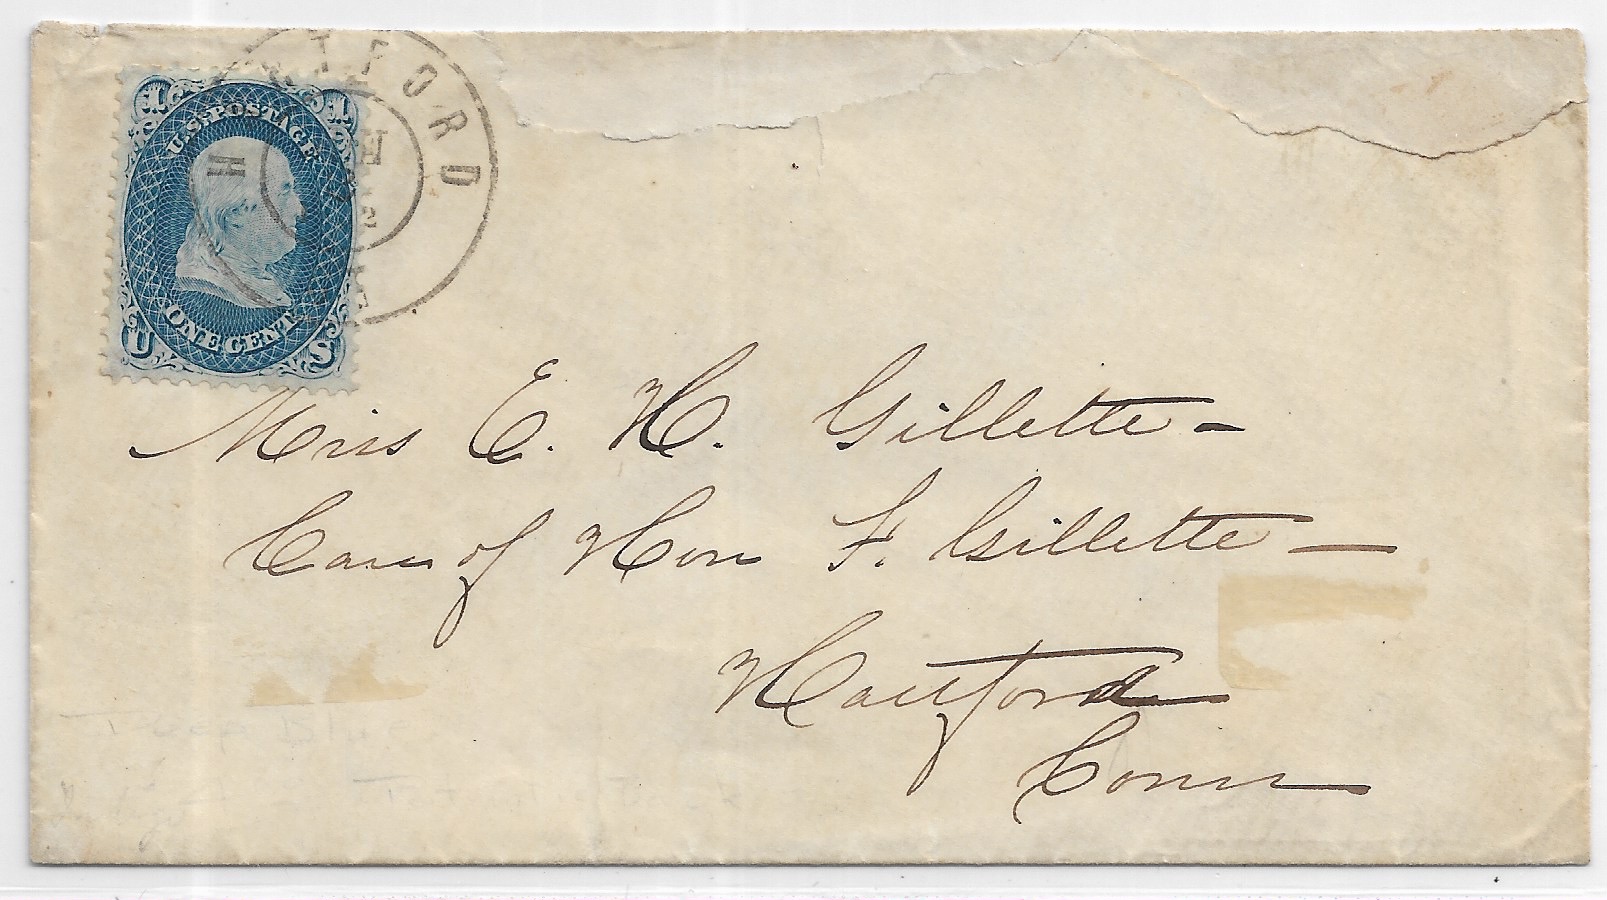 1 1
U.S. POSTAGE
ONE CENT
U S
H TFORD
Miss E. H. Gillette -
Care of Hon F. Gillette -
Hartford
Conn